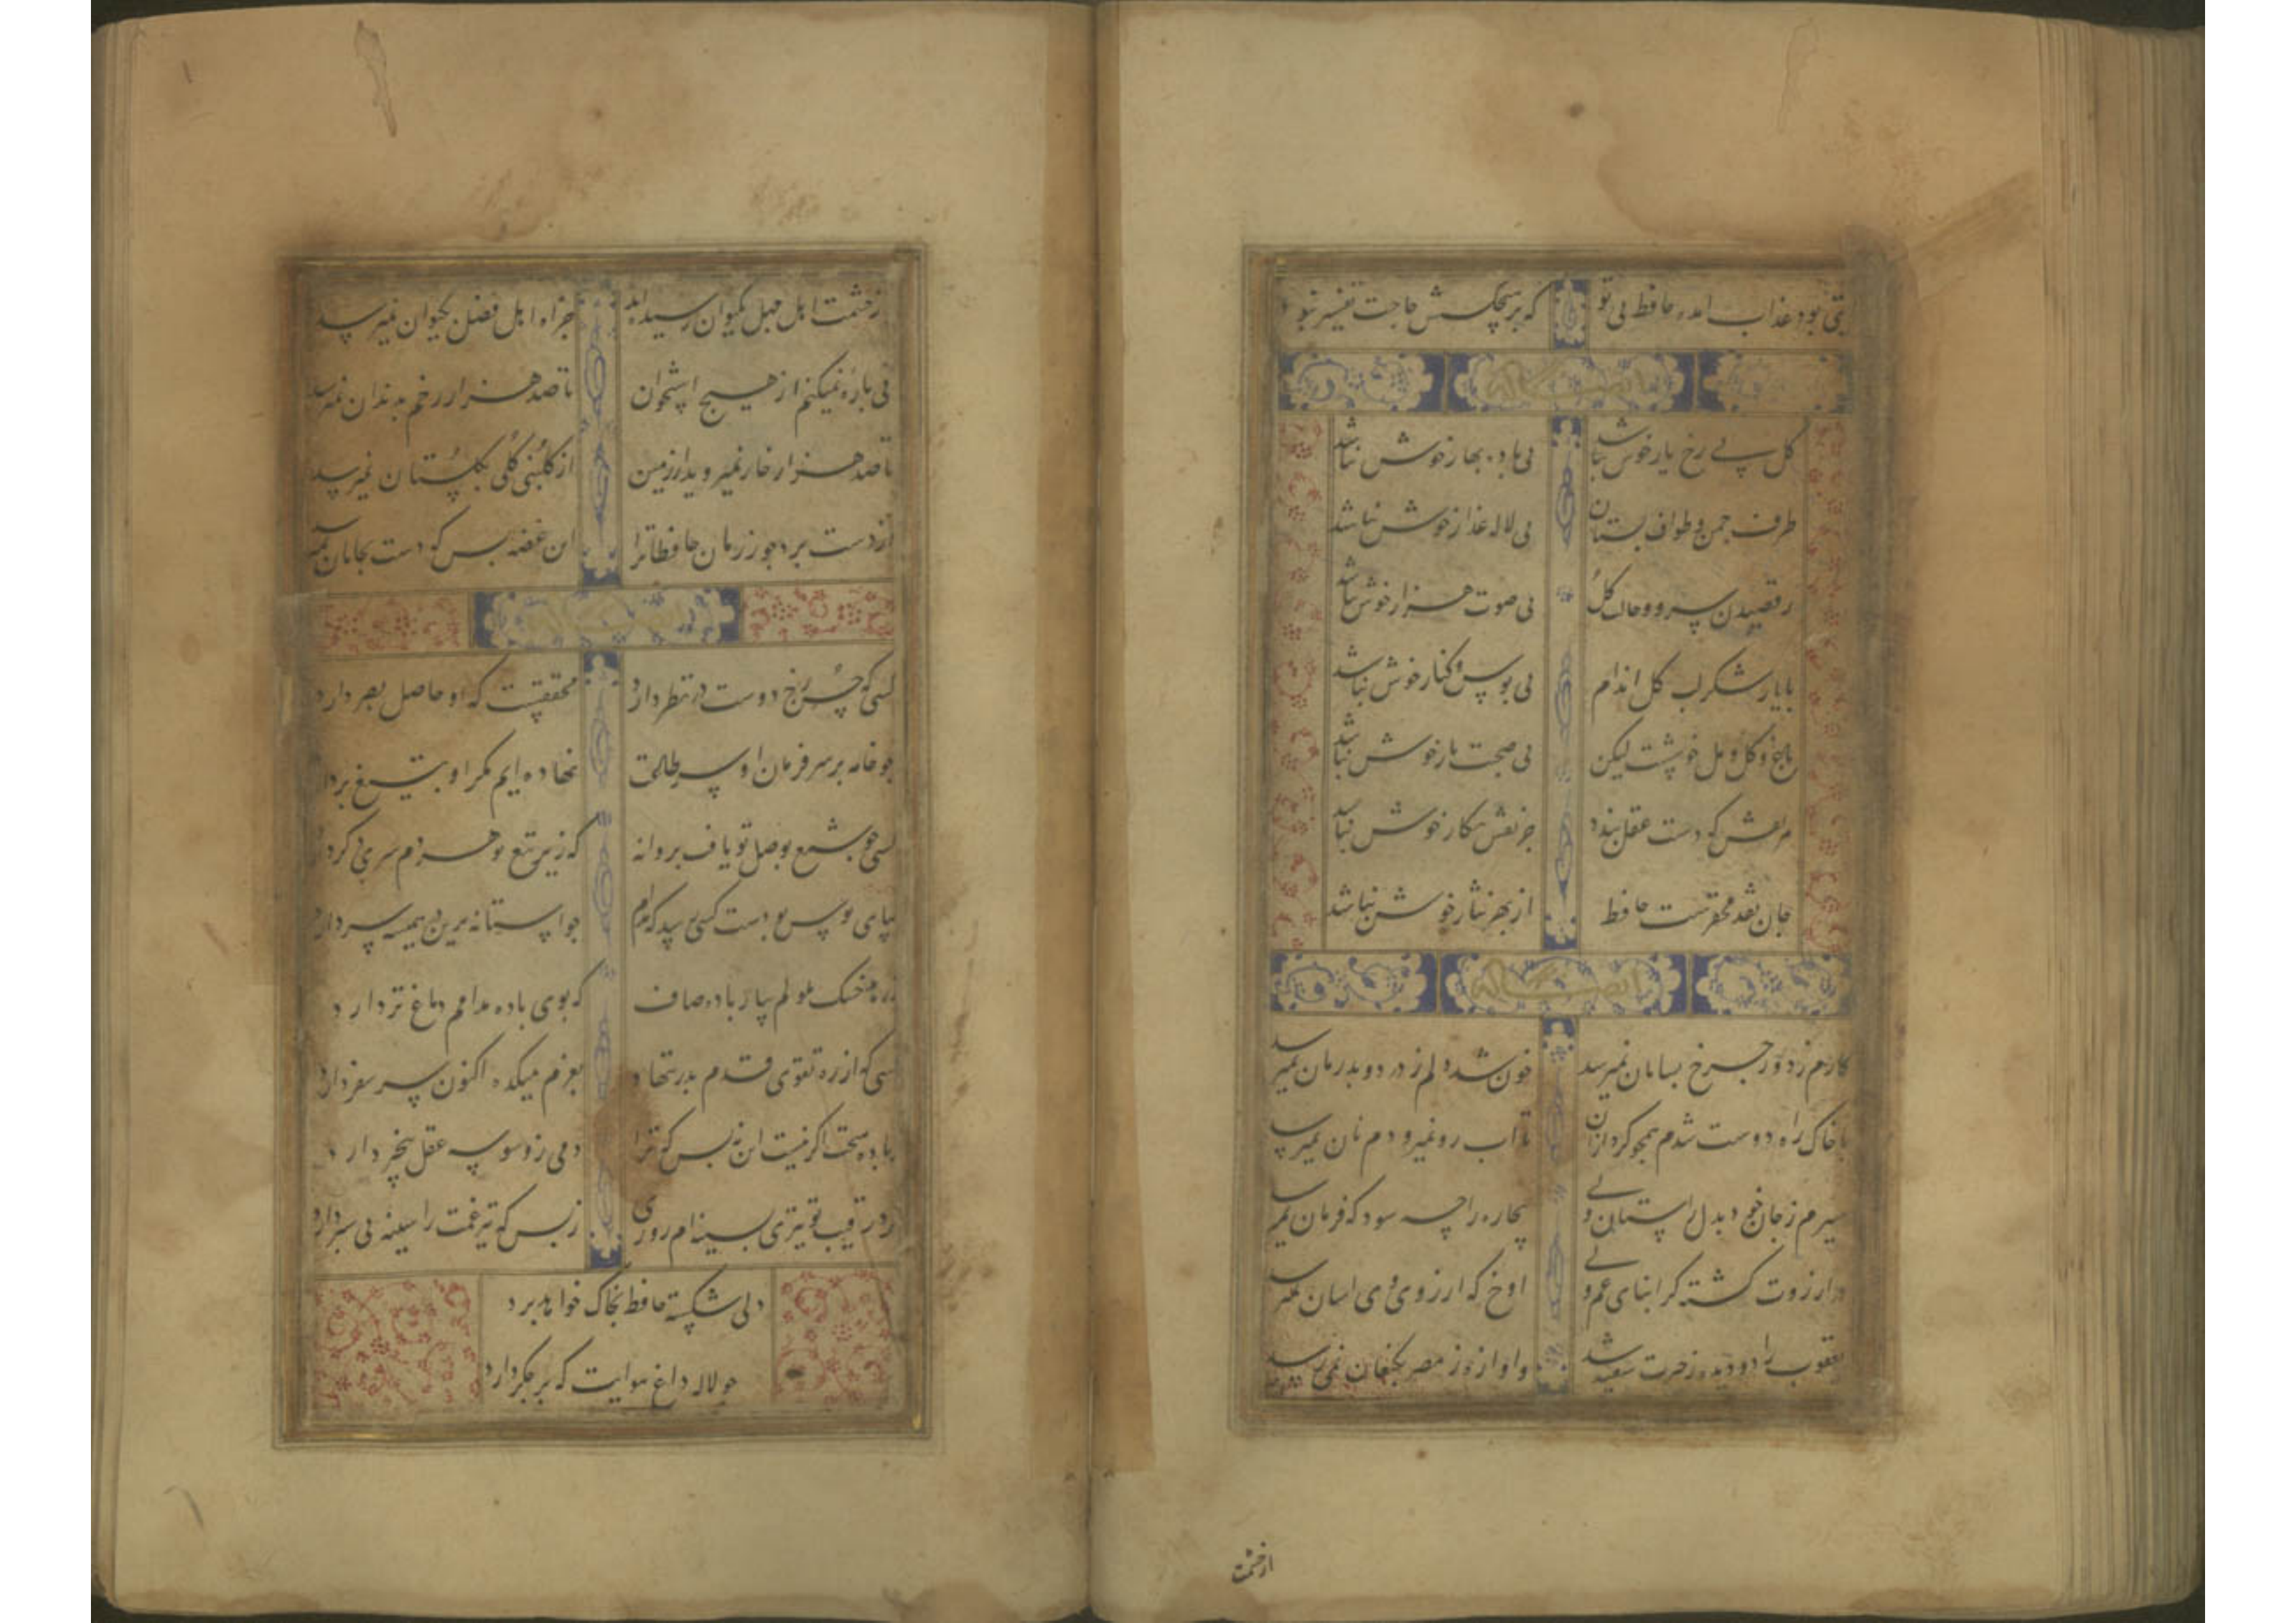 بود عذاب انده حافظ بی تو که بر هیچکسش حاجت تفسیر نبود
گل بی رخ یار خوش نباشد بی باده بهار خوش نباشد
طرف چمن و طواف بستان بی لاله عذار خوش نباشد
رقصیدن سرو و حالت گل بی صوت هزار خوش نباشد
با یار شکر لب گل اندام بی بوس و کنار خوش نباشد
باغ و گل و مل خوشست لیکن بی صحبت یار خوش نباشد
هر نقش که دست عقل بندد جز نقش نگار خوش نباشد
جان نقد محقرست حافظ از بهر نثار خوش نباشد
کارم ز دور چرخ بسامان نمیرسد خون شد دلم ز درد و بدرمان نمیرسد
با خاک راه دوست شدم همچو کرد ازان تا اب رو نمیرود م نان نمیرسد
سیرم ز جان خود بدل راستان ولی بیچاره را چه سود که فرمان نمیرسد
در ارزوت کشته کر ابنای غم ولی اوخ که ارزوی وی اسان نمیرسد
یعقوب را دو دیده ز حسرت سفید شد واوازه ز مصر بکنعان نمی رسد
ازحشمت
از حشمت اهل جهل بکیوان رسیده اند جز اه اهل فضل بکیوان نمیرسد
پی باره نمیکنم از هیچ استخوان تا صد هزار زخم بدندان نمیرسد
تا صد هزار خار نمیروید از زمین از کلبنی کلی بکلستان نمیرسد
از دست برد جور زمان حافظا ترا این غصه بس که دست بجانان نمیرسد
کسی که حسن رخ دوست در نظر دارد محققست که او حاصل بصر دارد
چو خامه بر سر فرمان او سر طاعت نهاده ایم مکر او بتیغ بردارد
کسی چو شمع بوصل تو یافت پروانه که زیر تیغ تو هر دم سری دکر دارد
بپای بوس تو دست کسی رسید که مدام چو استانه برین در همیشه سر دارد
ز زهد خشک ملولم بیار باده صاف که بوی باده مدامم دماغ تر دارد
کسی که از ره تقوی قدم بدر ننهاد بعزم میکده اکنون سر سفر دارد
ز باده هیچت اکر نیست این نه بس که ترا دمی ز وسوسه عقل بیخبر دارد
زد رقیب تو تیری بسینه ام روزی ز بس که تیر غمت را سینه بی سپر دارد
دلی شکسته حافظ بخاک خواهد برد
چو لاله داغ هوایت که بر جکر دارد